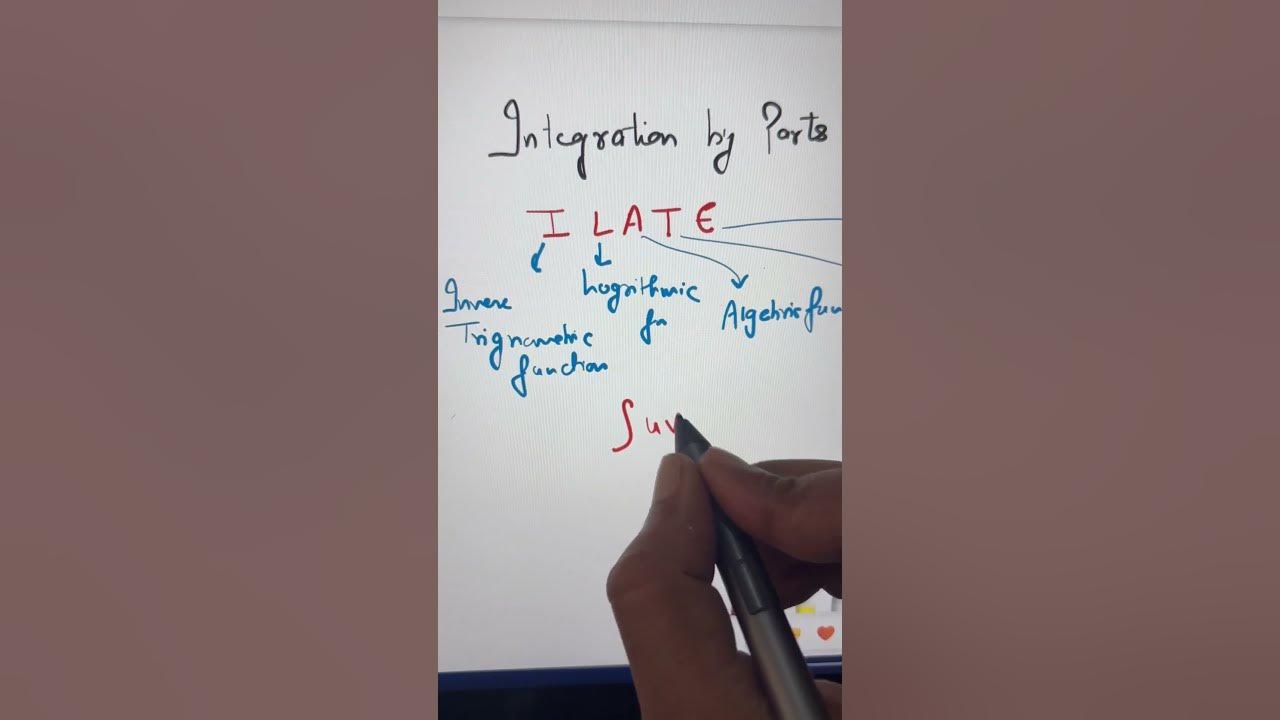 Integration by Parts
I L A T E
Inverse
Trignometric
function
Logrithmic
fn
Algebric fun
∫ u v